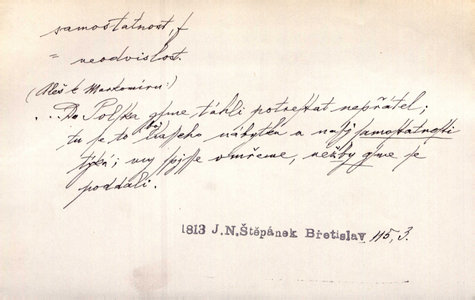 samostatnost, f
= neodvislost.
(Aleš k Markomíru:)
...Do Polska gsme táhli potrestat nepřátel;
tu se to našeho nábytka a našj samostatnosti
týká; my spjsse omřeme, nežby gsme se
poddali.
1813 J.N.Štěpánek Břetislav 115,3.